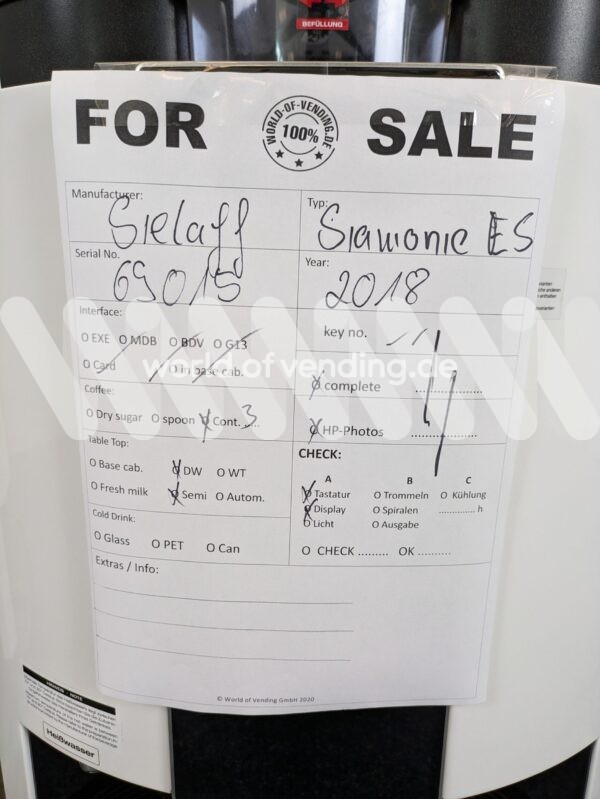 BEFÜLLUNG
FOR SALE
WORLD-OF-VENDING.DE
100%
Manufacturer:
Sielaff
Typ:
Siamonie ES
Serial No.
69015
Year:
2018
Interface:
O EXE O MDB O BDV O G13
O Card O in base cab.
key no.
O complete ..................
O HP-Photos ..................
world of vending.de
Coffee:
O Dry sugar O spoon O Cont. 3
Table Top:
O Base cab. O DW O WT
O Fresh milk O Semi O Autom.
Cold Drink:
O Glass O PET O Can
CHECK:
A B C
O Tastatur O Trommeln O Kühlung
O Display O Spiralen .............. h
O Licht O Ausgabe
O CHECK ......... OK ..........
Extras / Info:
© World of Vending GmbH 2020
HINWEIS NOTE
Heißwasser